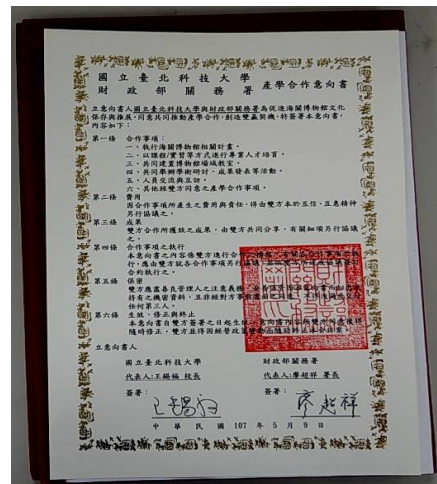 國立臺北科技大學
財政部關務署
產學合作意向書
立意向書人國立臺北科技大學與財政部關務署為促進海關博物館文化
保存與推展,同意共同推動產學合作,創造雙贏契機,特簽署本意向書,
內容如下:
第一條 合作事項:
一、執行海關博物館相關計畫。
二、以課程/實習等方式進行專業人才培育。
三、共同建置博物館場域教室。
四、共同舉辦學術研討、成果發表等活動。
五、人員交流與互訪。
六、其他經雙方同意之產學合作事項。
第二條 費用
因合作事項所產生之費用與責任,得由雙方本於互信、互惠精神
另行協議之。
第三條 成果
雙方合作所獲致之成果,由雙方共同分享,有關細項另行協議
之。
第四條 合作事項之執行
本意向書之內容係雙方進行合作之
行,應由雙方就各合作事項另行
合約執行之。
第五條 保密
雙方應盡善良管理人之注意義
持有之機密資料,且非經對方事前書面之同意
任何第三人。
第六條 生效、修正與終止
本意向書自雙方簽署之日起生效
隨時修正,雙方並得因經營政策
立意向書人
國立臺北科技大學
財政部關務署
代表人:王錫福 校長
代表人:廖超祥 署長
簽署:
簽署:
王錫福
廖超祥
中華民國 107 年 5 月 9 日